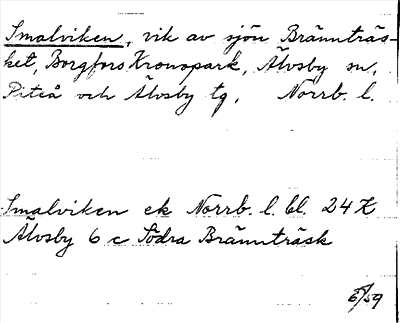 Smalviken, vik av sjön Brännträs-
ket, Borgfors Kronopark, Älvsby sn,
Piteå och Älvsby tg, Norrb. l.
Smalviken ek Norrb. l. bl. 24 K
Älvsby 6 c Södra Brännträsk